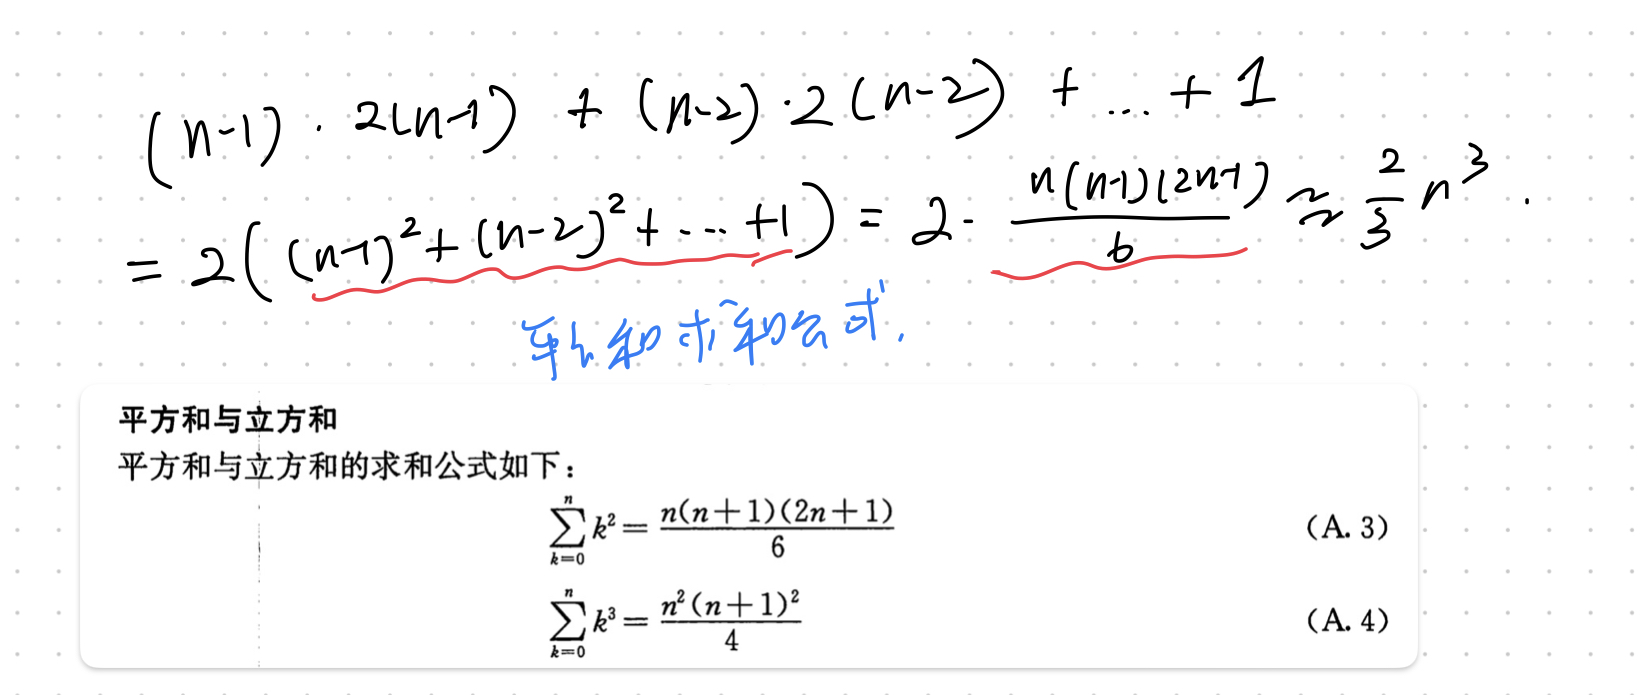 (n-1) · 2(n-1) + (n-2) · 2(n-2) + ... + 1
= 2((n-1)² + (n-2)² + ... + 1) = 2 · n(n-1)(2n-1)/6 ≈ 2/3 n³.
平方和求和公式.
平方和与立方和
平方和与立方和的求和公式如下：
∑_{k=0}^{n} k² = n(n+1)(2n+1)/6 (A. 3)
∑_{k=0}^{n} k³ = n²(n+1)²/4 (A. 4)